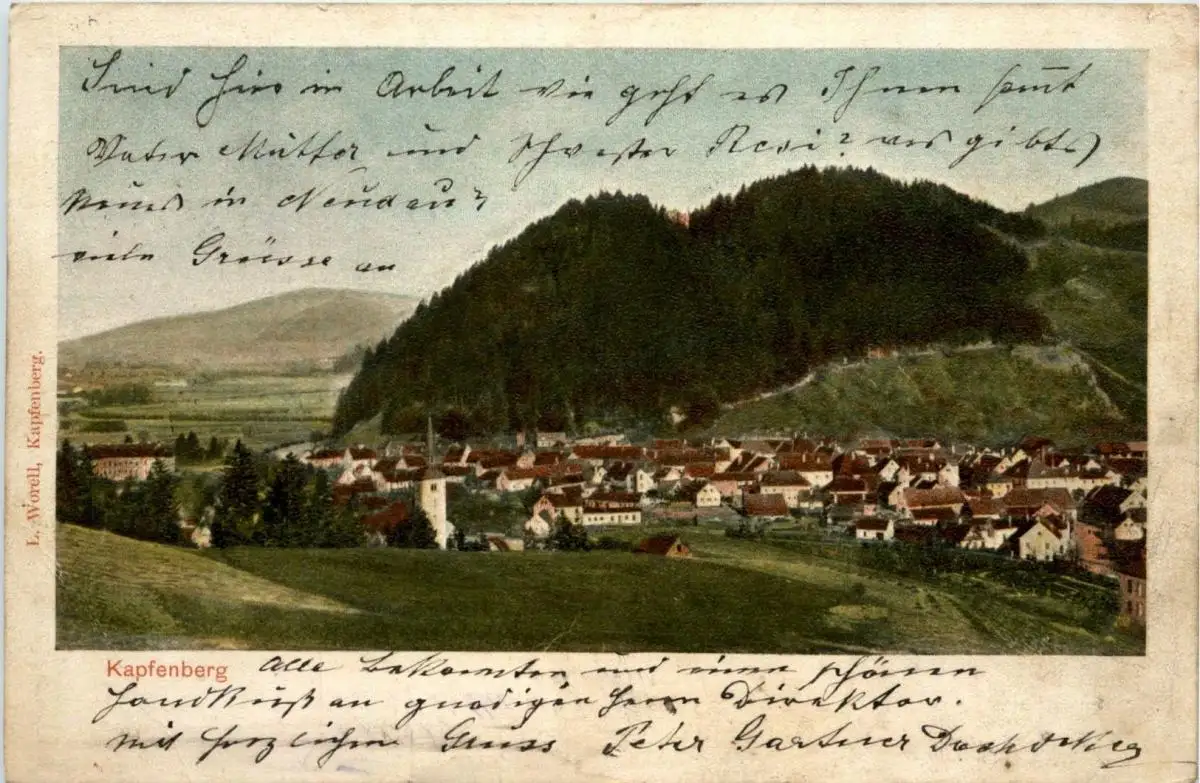 Sind hier in Arbeit wie geht es Ihnen samt
Vater Mutter und Schwester Resi? was gibts
neues in Neudau?
viele Grüsse an
L. Worell, Kapfenberg.
Kapfenberg
Alle Bekannten und einen schönen
Handkuß an gnädigen Herrn Direktor.
mit herzlichem Gruss Peter Gartner